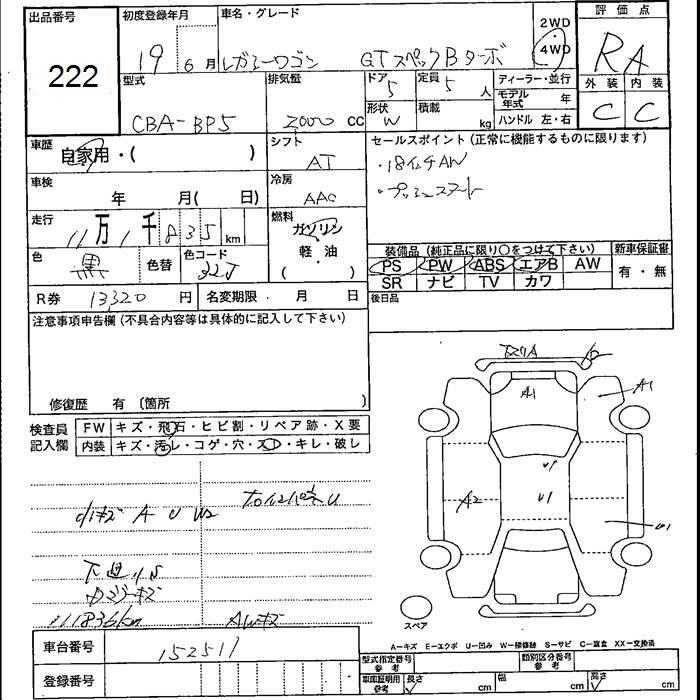 出品番号
222
初度登録年月
19年6月
車名・グレード
レガシーワゴン GTスペックBターボ
2WD
4WD
評価点
RA
外装 内装
C C
型式
CBA-BP5
排気量
2000 CC
ドア
5
形状
W
定員
5 人
積載
kg
ディーラー・並行
モデル年式 年
ハンドル 左・右
車歴
自家用・( )
シフト
AT
セールスポイント (正常に機能するものに限ります)
・18インチAW
・プッシュスタート
車検
年 月( 日)
冷房
AAC
走行
11万1千835 km
燃料
ガソリン
軽・油
( )
色
黒
色替
色コード
32J
装備品 (純正品に限り○をつけて下さい)
新車保証書
PS PW ABS エアB AW
SR ナビ TV カワ
有・無
R券 13320 円
名変期限 ・ 月 日
後日品
注意事項申告欄 (不具合内容等は具体的に記入して下さい)
修復歴 有 〔箇所 〕
検査員記入欄
FW キズ・飛石・ヒビ割・リペア跡・X要
内装 キズ・汚レ・コゲ・穴・スレ・キレ・破し
A1
A1
A2
U1
A U W2
下廻りS
111836km
AWキズ
スペア
A-キズ E-エクボ U-凹み W-補修跡 S-サビ C-腐食 XX-交換済
車台番号
152511
登録番号
型式指定番号 参考
類別区分番号 参考
車庫証明用 参考
長さ cm
幅 cm
高さ cm